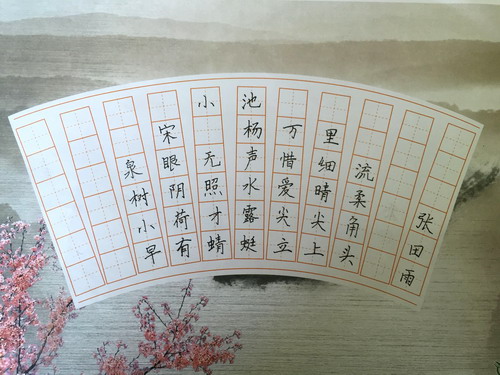 小池
宋 杨万里
泉眼无声惜细流
树阴照水爱晴柔
小荷才露尖尖角
早有蜻蜓立上头
张田雨